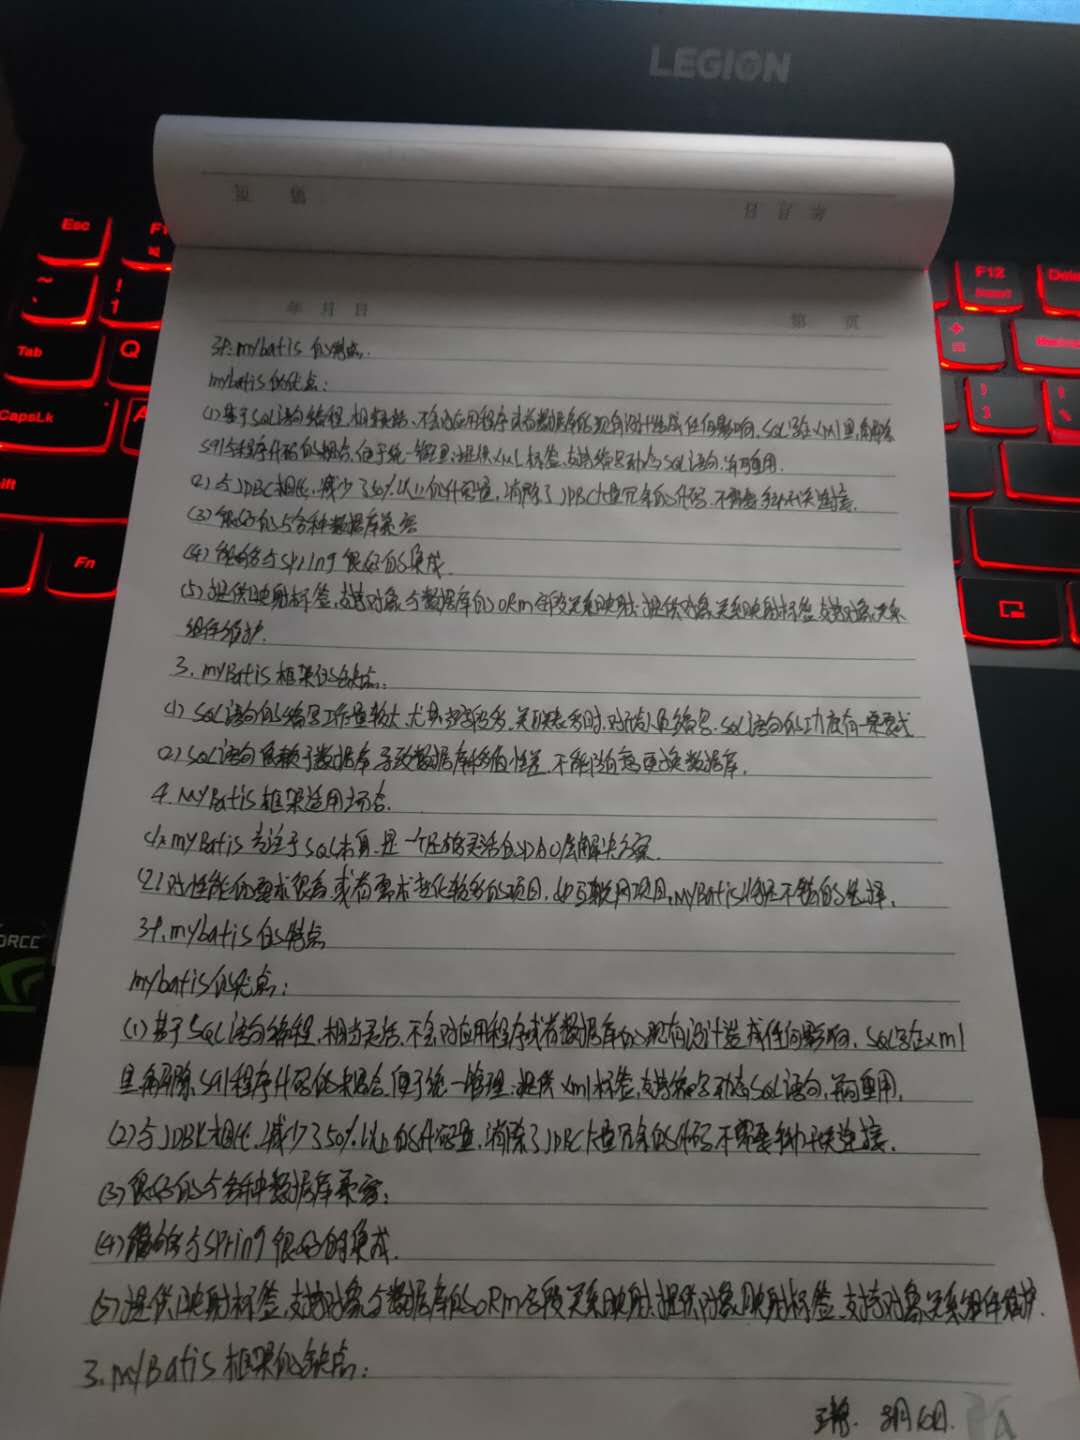 LEGION
Esc
F1
F12
Insert
Dele
~
!
1
+
=
Tab
Q
CapsLk
A
Fn
年 月 日
第 页
34.mybatis的特点.
mybatis的优点:
(1)基于SQL语句编程,相当灵活,不会对应用程序或者数据库的现有设计造成任何影响,SQL写在xml里,解除
sql与程序代码的耦合,便于统一管理;提供XML标签,支持编写动态SQL语句,并可重用.
(2)与JDBC相比,减少了50%以上的代码量,消除了JDBC大量冗余的代码,不需要手动开关连接.
(3)很好的与各种数据库兼容
(4)能够与Spring很好的集成.
(5)提供映射标签,支持对象与数据库的ORM字段关系映射;提供对象关系映射标签,支持对象关系
组件维护.
3. MyBatis框架的缺点:
(1)SQL语句的编写工作量较大,尤其字段多,关联表多时,对开发人员编写SQL语句的功底有一定要求
(2)SQL语句依赖于数据库,导致数据库移植性差,不能随意更换数据库.
4. MyBatis框架适用场合.
(1)myBatis专注于SQL本身,是一个足够灵活的DAO层解决方案.
(2)对性能的要求很高,或者需求变化较多的项目,如互联网项目,MyBatis将是不错的选择.
34.mybatis的特点
mybatis的优点:
(1)基于SQL语句编程,相当灵活,不会对应用程序或者数据库的现有设计造成任何影响,SQL写在xml
里,解除sql程序代码的耦合,便于统一管理;提供xml标签,支持编写动态SQL语句,并可重用.
(2)与JDBC相比,减少了50%以上的代码量,消除了JDBC大量冗余的代码,不需要手动开关连接.
(3)很好的与各种数据库兼容;
(4)能够与Spring很好的集成.
(5)提供映射标签,支持对象与数据库的ORM字段关系映射;提供对象映射标签,支持对象关系组件维护.
3.MyBatis框架的缺点: